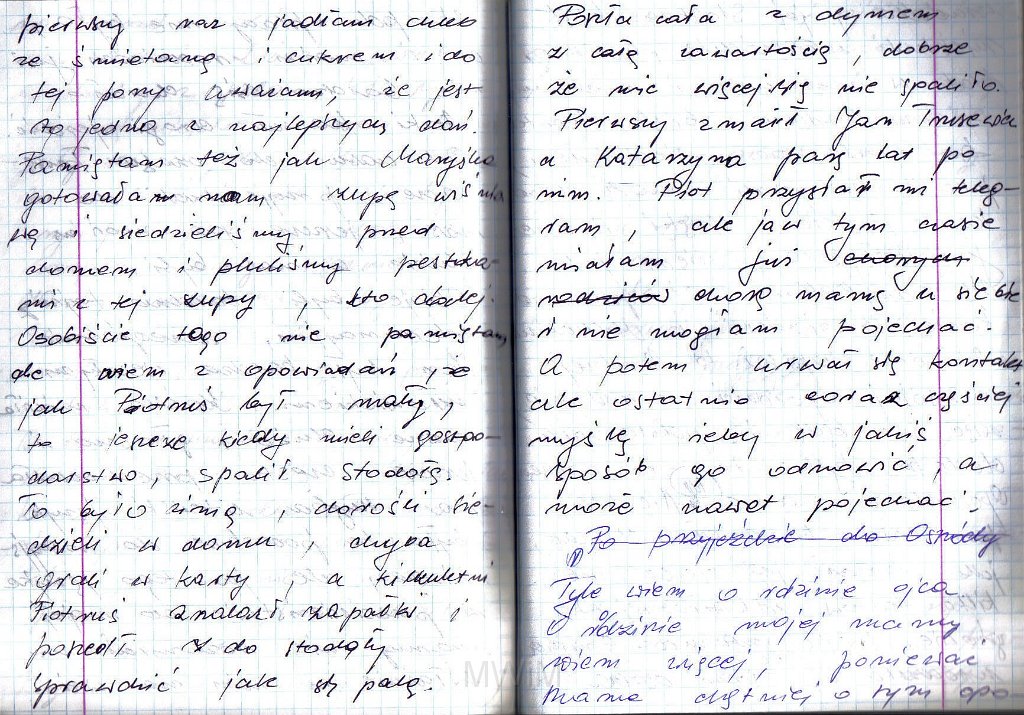 pierwszy raz jadłam
ze śmietaną i cukrem i do
tej pory uważam, że jest
to jedno z najlepszych dań.
Pamiętam też jak Maryśka
gotowała nam zupę wiśnio
wą i siedzieliśmy przed
domem i pluliśmy pestka-
mi z tej zupy kto dalej.
Osobiście tego nie pamiętam
ale wiem z opowiadań, że
jak Piotruś był mały,
to jeszcze kiedy mieli gospo-
darstwo, spalił stodołę.
To było zimą, dorośli sie-
dzieli w domu, chyba
grali w karty, a kilkuletni
Piotruś znalazł zapałki i
poszedł do stodoły
sprawdzić jak się palą.
Poszła cała z dymem
z całą zawartością, dobrze
że nic więcej się nie spaliło.
Pierwszy zmarł Jan Trusewicz
a Katarzyna parę lat po
nim. Piotr przysłał mi teleg-
ram, ale ja w tym czasie
miałam już chorych
rodziców chorą mamę u siebie
i nie mogłam pojechać.
A potem urwał się kontakt
ale ostatnio coraz częściej
myślę żeby w jakiś
sposób go odnowić, a
może nawet pojechać.
Po przyjeździe do Ostródy
Tyle wiem o rodzinie ojca.
O rodzinie mojej mamy
wiem więcej, ponieważ
mama chętniej o tym opo-
MWM